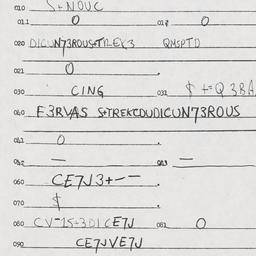 010 S+NOUC
011 0 012 0
020 DICUN73ROUS+TREK3 QMSPTD
021 0
030 CING 031 $ += Q3BA
060 F3RVAS S+TREKCDUDICUN73ROUS
061 0
062 — 063 —
060 CE7J3+——
070 $
080 CV-15+3DICE7J 081 0
090 CE7JVE7J